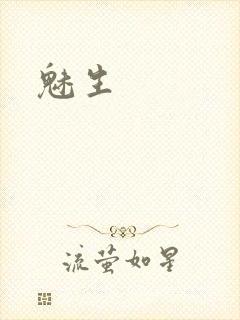 魅生
流萤如星